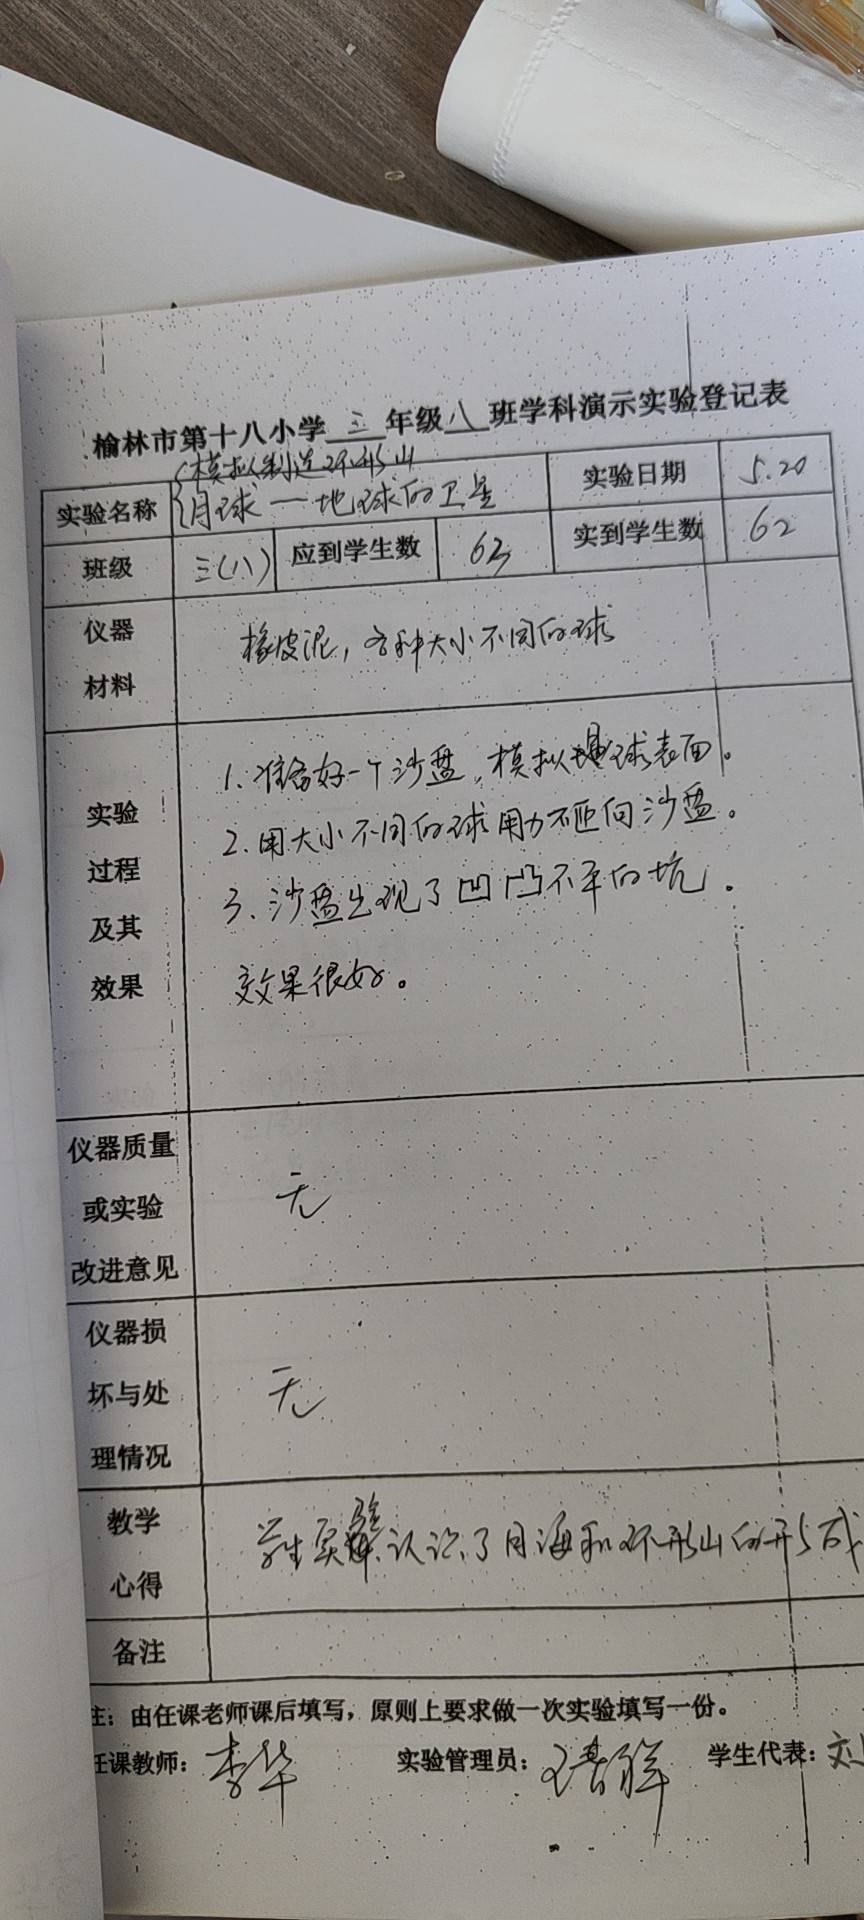 榆林市第十八小学 三 年级 八 班学科演示实验登记表
实验名称 模拟制造环形山 实验日期 5.20
月球—地球的卫星
班级 三(八) 应到学生数 63 实到学生数 62
仪器
材料
橡皮泥,各种大小不同的球
实验
过程
及其
效果
1.准备好一个沙盘,模拟球表面。
2.用大小不同的球用力砸向沙盘。
3.沙盘出现了凹凸不平的坑。
效果很好。
仪器质量
或实验
改进意见
无
仪器损
坏与处
理情况
无
教学
心得
学生实验认识了月海和环形山的形成
备注
注:由任课老师课后填写,原则上要求做一次实验填写一份。
任课教师:李华 实验管理员: 学生代表:刘